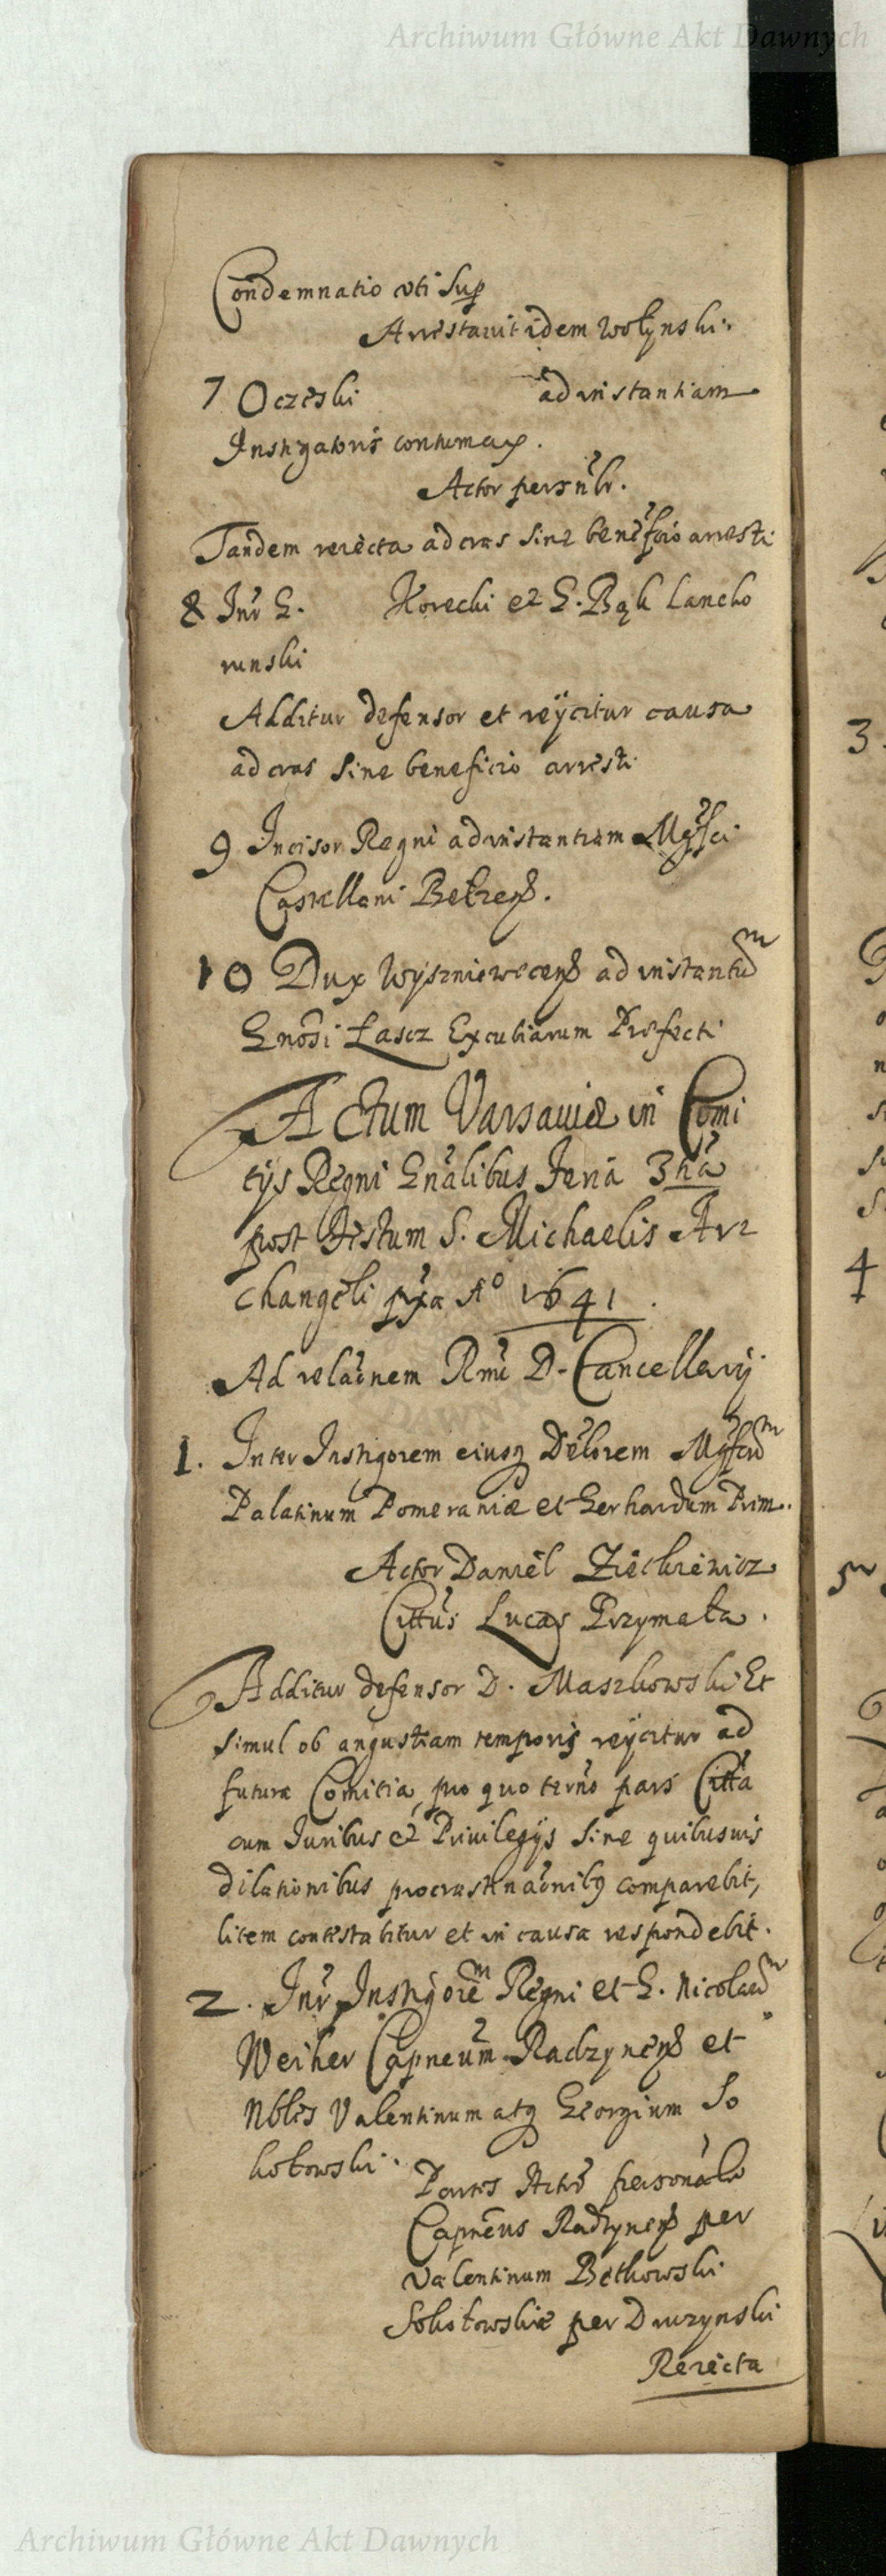 Archiwum Główne Akt Dawnych
Condemnatio uti sup
Arrestavit idem Wołynski.
7 Oczeski ad instantiam
Instigatoris contumax.
Actor personlr.
Tandem reiecta ad cras sine beneficio arresti
8 Intr G. Korecki et G. Bąk Lancko
runski
Additur defensor et reÿcitur causa
ad cras sine beneficio arresti
9 Incisor Regni ad instantiam Mgfci
Castellani Bełzeñ.
10 Dux Wyszniewecenß ad instantiam
Gnosi Łascz Excubiarum Præfecti
Actum Varsaviæ in Comi
tijs Regni Gnalibus Feria 3tia
post Festum S. Michaelis Ar
changeli pxa Aº 1641.
Ad relaonem Rmi D. Cancellarij
1. Inter Instigorem eiusq Delorem Mgfcum
Palatinum Pomeraniæ et Gerhardum Prim.
Actor Daniel Zieckiewicz
Cittus Lucas Przymała.
Additur defensor D. Maszkowski Et
simul ob angustiam temporis reÿcitur ad
futura Comitia, pro quo termo pars Citta
cum Iuribus et Privilegijs sine quibusvis
dilationibus procrastinaonibq comparebit,
litem contestabitur et in causa respondebit.
2. Intr Instigorem Regni et G. Nicolaum
Weiher Capneum Radzynenß et
Nobles Valentinum atq Georgium So
kołowski.
Partes Actor personalr
Capneus Radzynenß per
Valentinum Betkowski
Sokołowskie per Druzynski
Reiecta
Archiwum Główne Akt Dawnych